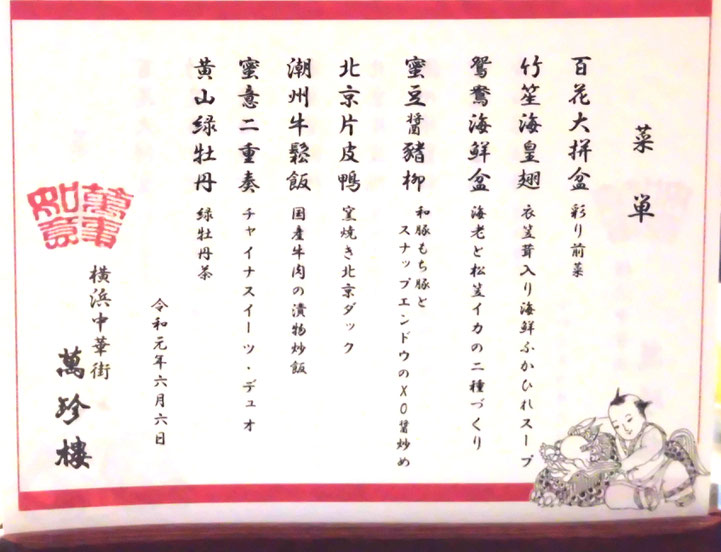 菜単
百花大拼盆 彩り前菜
竹笙海皇翅 衣笠茸入り海鮮ふかひれスープ
鴛鴦海鮮盆 海老と松笠イカの二種づくり
蜜豆醬豬柳 和豚もち豚と
スナップエンドウのXO醤炒め
北京片皮鴨 窯焼き北京ダック
潮州牛鬆飯 国産牛肉の漬物炒飯
蜜意二重奏 チャイナスイーツ・デュオ
黄山緑牡丹 緑牡丹茶
令和元年六月六日
横浜中華街
萬珍樓
萬事
如意